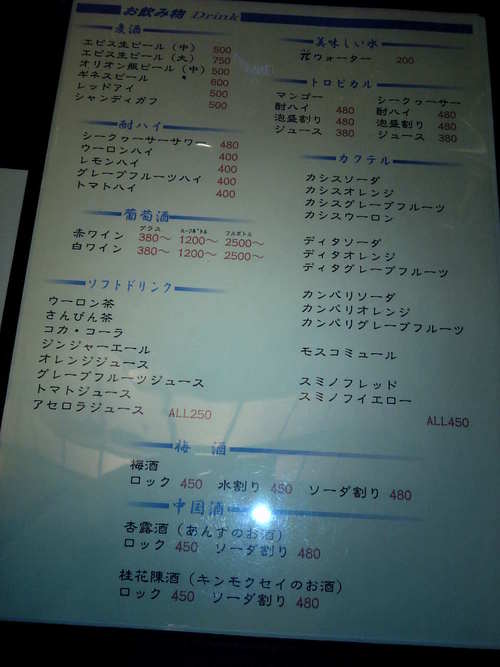 お飲み物 Drink
麦酒
エビス生ビール(中) 500
エビス生ビール(大) 750
オリオン瓶ビール(中) 500
ギネスビール 600
レッドアイ 500
シャンディガフ 500
酎ハイ
シークヮーサーサワー 480
ウーロンハイ 400
レモンハイ 400
グレープフルーツハイ 400
トマトハイ 400
葡萄酒
グラス ハーフボトル フルボトル
赤ワイン 380～ 1200～ 2500～
白ワイン 380～ 1200～ 2500～
ソフトドリンク
ウーロン茶
さんぴん茶
コカ・コーラ
ジンジャーエール
オレンジジュース
グレープフルーツジュース
トマトジュース
アセロラジュース ALL250
美味しい水
花ウォーター 200
トロピカル
マンゴー
酎ハイ 480
泡盛割り 480
ジュース 380
シークヮーサー
酎ハイ 480
泡盛割り 480
ジュース 380
カクテル
カシスソーダ
カシスオレンジ
カシスグレープフルーツ
カシスウーロン
ディタソーダ
ディタオレンジ
ディタグレープフルーツ
カンパリソーダ
カンパリオレンジ
カンパリグレープフルーツ
モスコミュール
スミノフレッド
スミノフイエロー
ALL450
梅酒
梅酒
ロック 450 水割り 450 ソーダ割り 480
中国酒
杏露酒(あんずのお酒)
ロック 450 ソーダ割り 480
桂花陳酒(キンモクセイのお酒)
ロック 450 ソーダ割り 480